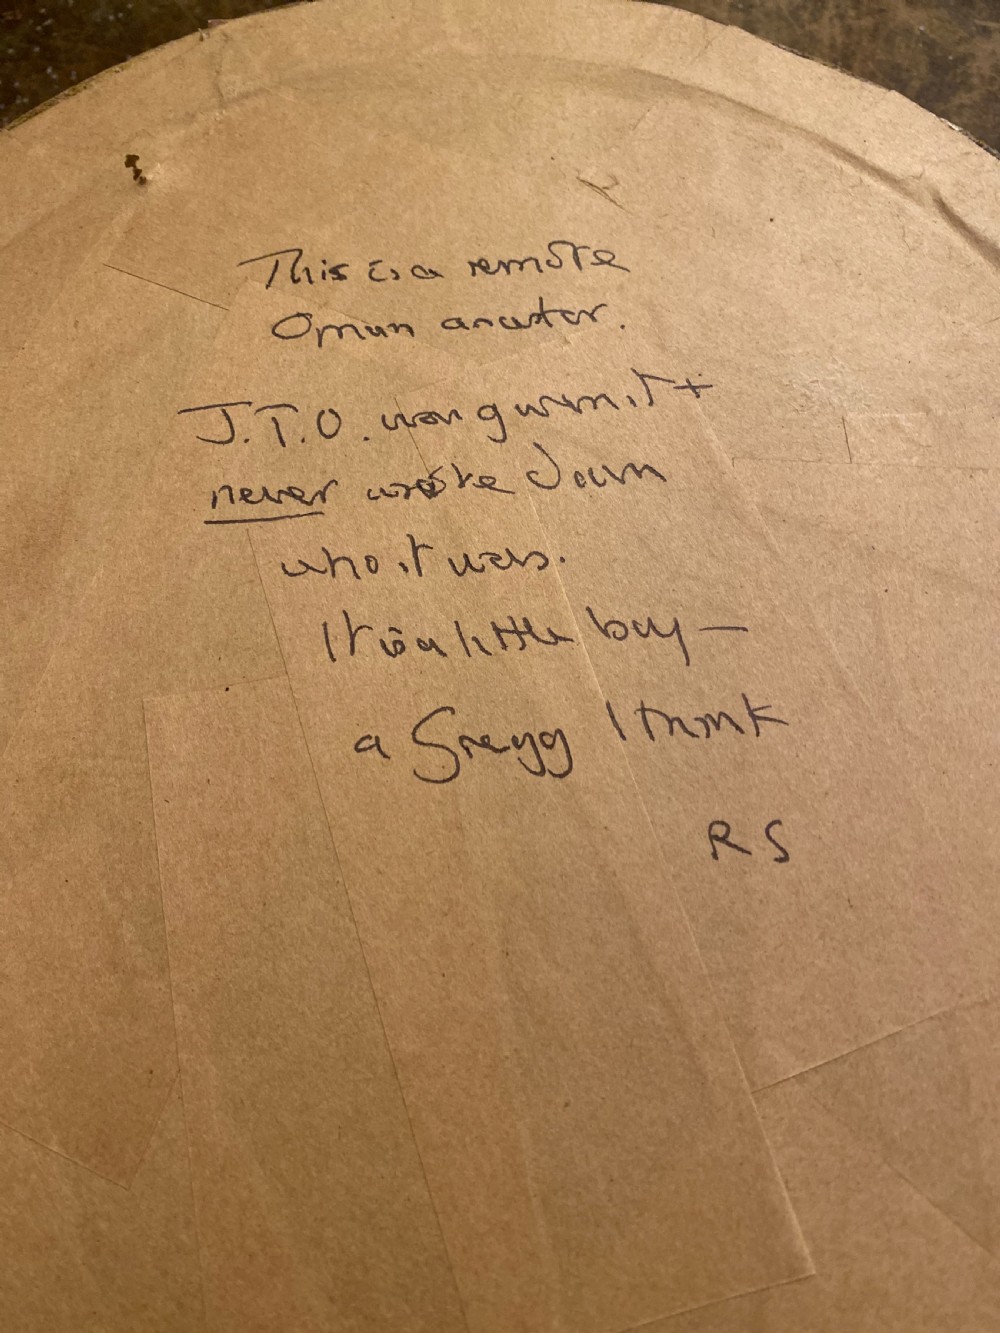 This is a remote
Oman ancestor.
J.T.O. was given it +
never wrote down
who it was.
It is a little boy —
a Gregg I think
R S